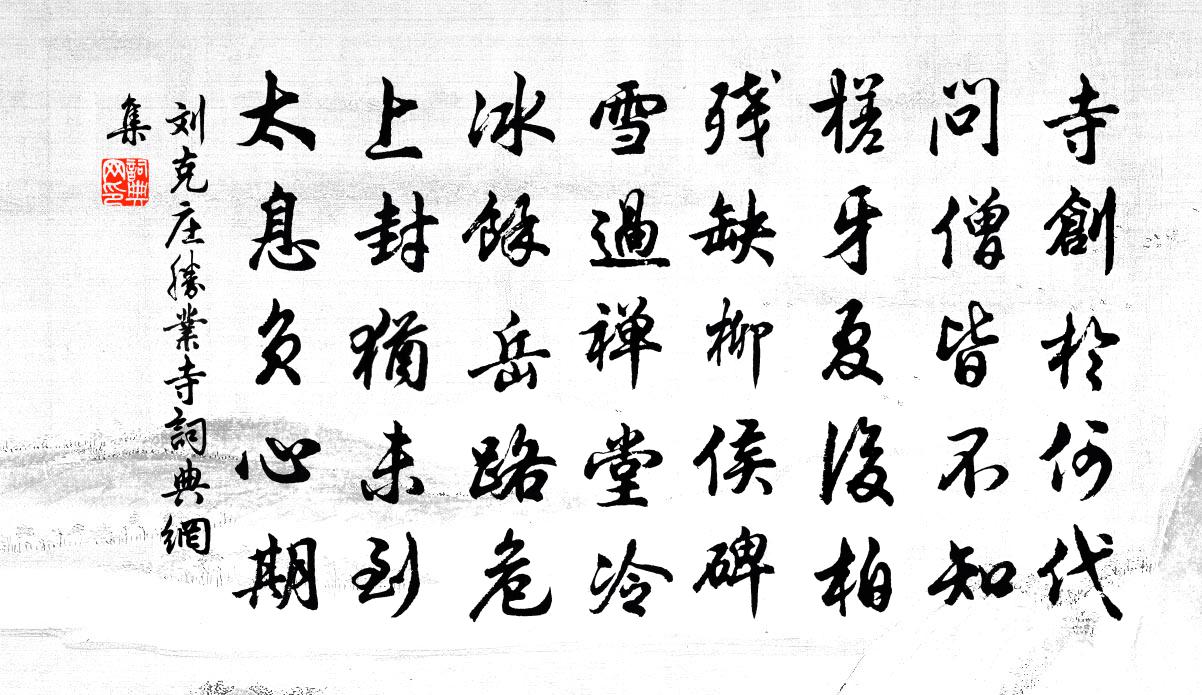 寺創於何代
問僧皆不知
槎牙夏後柏
殘缺柳侯碑
雪過禅堂冷
冰餘岳路危
上封猶未到
太息負心期
刘克庄勝業寺詞典網
集
詞典
网印